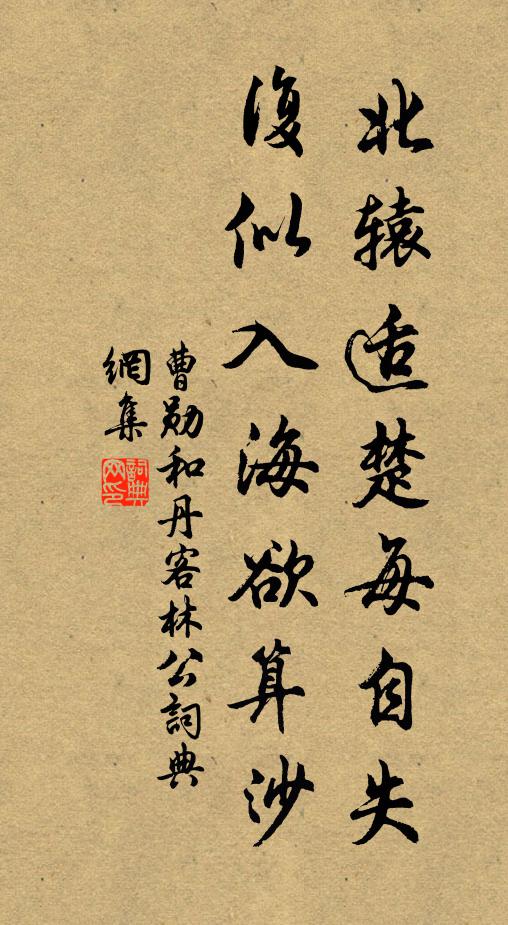 北辕适楚每自失
復似入海欲算沙
曹勋和丹客林公詞典
網集
詞典網印